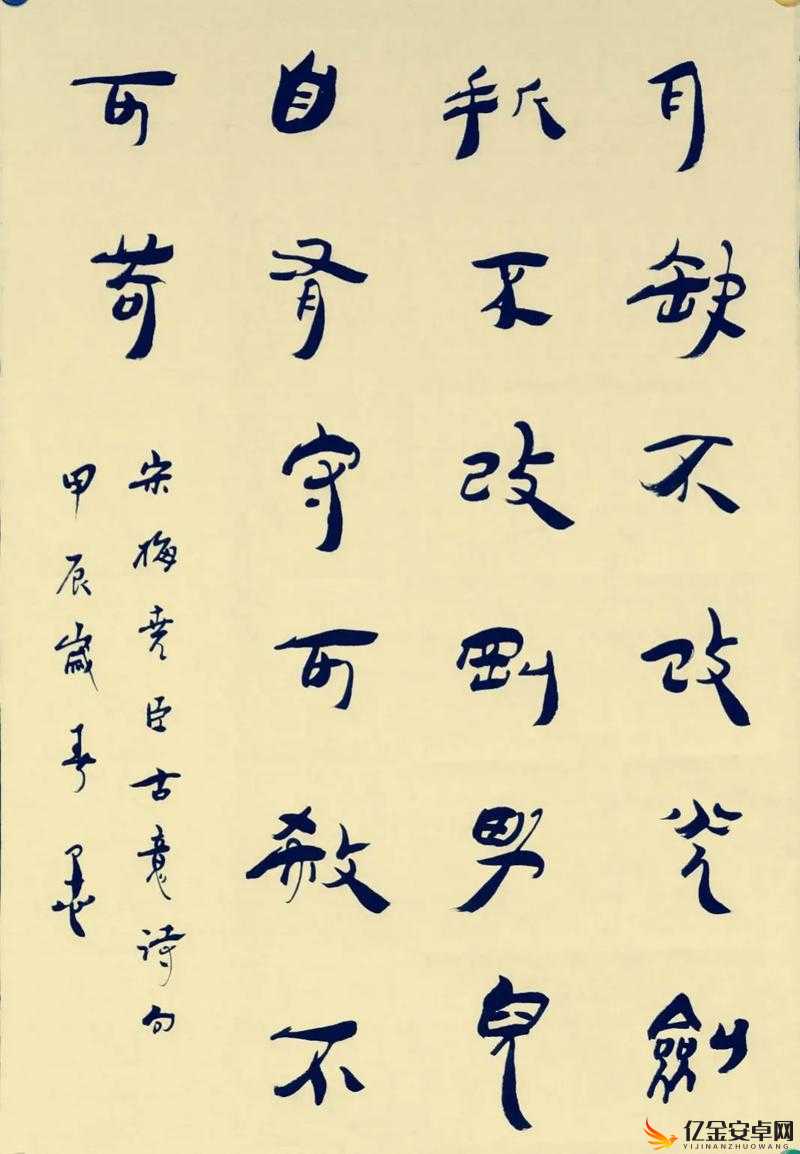 月缺不改光劍
折不改剛男兒
自有守可殺不
可苟
宋梅堯臣古意詩句
甲辰歲春
亿金安卓网
YIJINANZHUOWANG